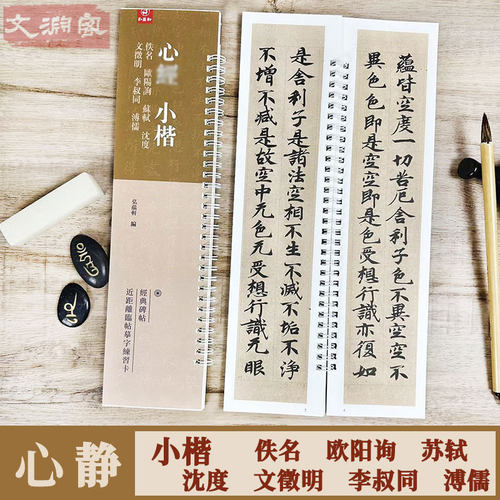 文渊阁
心經 小楷
佚名 歐陽詢 蘇軾 沈度
文徵明 李叔同 溥儒
弘蘊軒 編
經典碑帖
近距離臨帖摹字練習卡
蘊皆空度一切苦厄舍利子色不異空空不
異色色即是空空即是色受想行識亦復如
是舍利子是諸法空相不生不滅不垢不淨
不增不減是故空中无色无受想行識无眼
心静
小楷 佚名 欧阳询 苏轼
沈度 文徵明 李叔同 溥儒